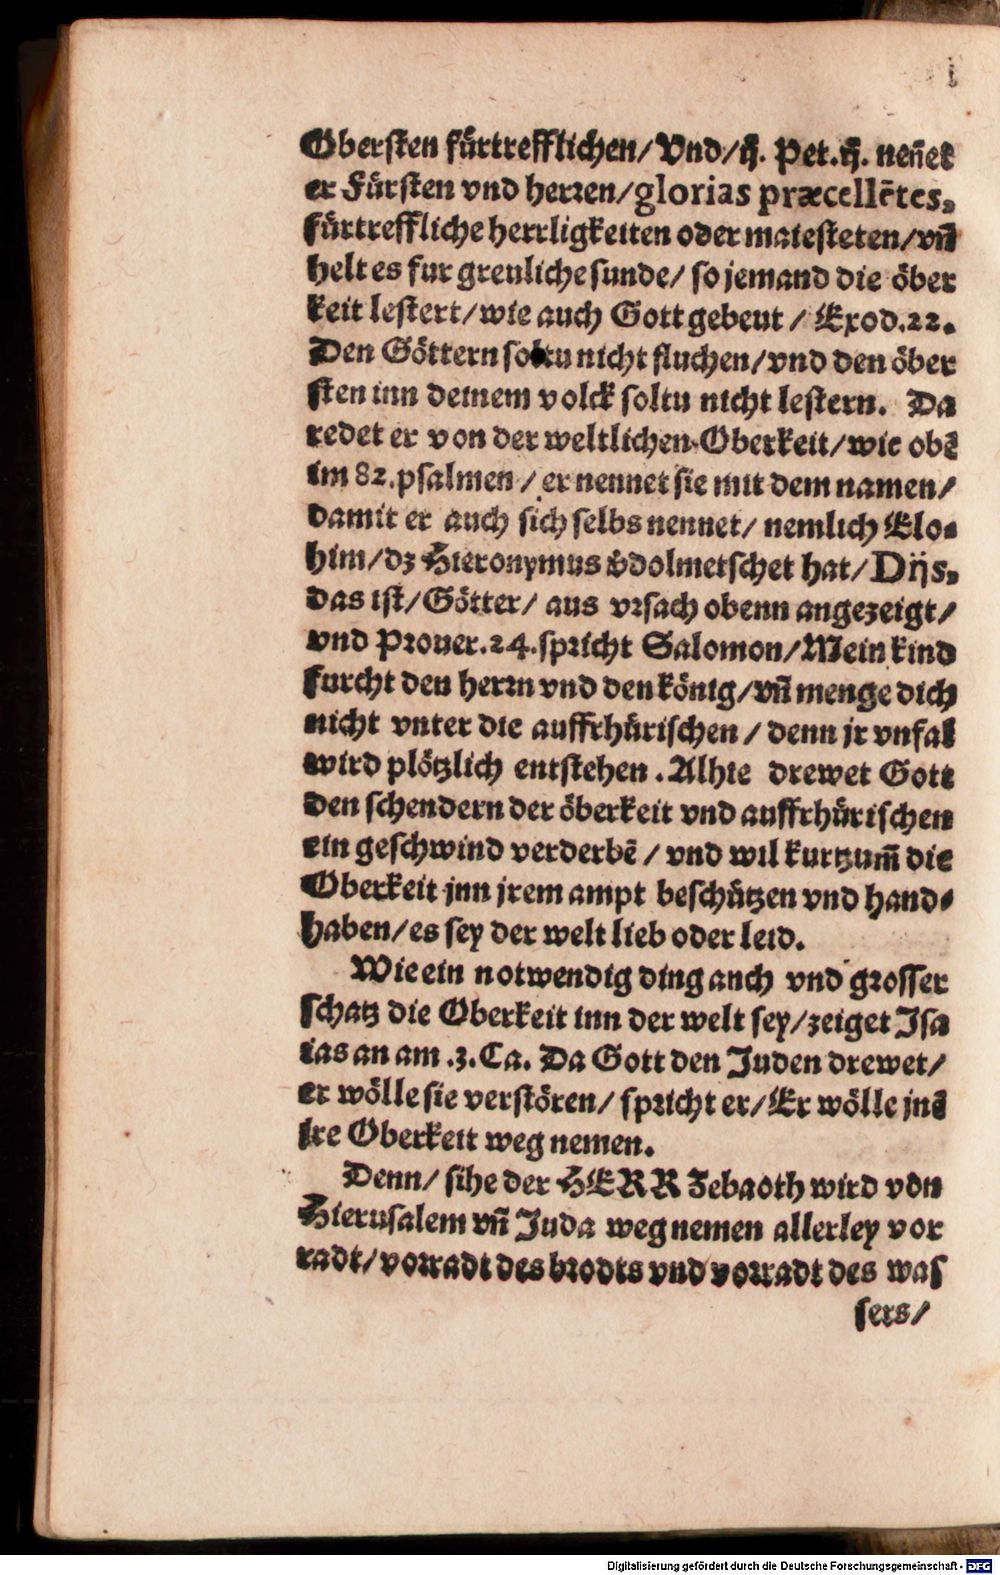 Obersten fürtrefflichen/ Vnd/ ij. Pet. ij. neñet
er Fürsten vnd herꝛen/ glorias præcellētes,
fürtreffliche herrligkeiten oder maiesteten/ vñ
helt es fur greuliche sunde/ so jemand die öber
keit lestert/ wie auch Gott gebeut / Exod.22.
Den Göttern soltu nicht fluchen/ vnd den öber
sten inn deinem volck soltu nicht lestern. Da
redet er von der weltlichen Oberkeit/ wie obē
im 82. psalmen / er nennet sie mit dem namen/
damit er auch sich selbs nennet/ nemlich Elo⸗
him/ dz Hieronymus v̄dolmetschet hat/ Dijs,
das ist/ Götter/ aus vꝛsach obenn angezeigt/
vnd Pꝛouer. 24. spꝛicht Salomon/ Mein kind
furcht den herꝛn vnd den könig/ vñ menge dich
nicht vnter die auffrhürischen / denn jr vnfal
wird plötzlich entstehen. Alhie drewet Gott
den schendern der öberkeit vnd auffrhürischen
ein geschwind verderbē / vnd wil kurtzum̄ die
Oberkeit jnn jrem ampt beschützen vnd hand⸗
haben/ es sey der welt lieb oder leid.
Wie ein notwendig ding auch vnd gꝛosser
schatz die Oberkeit inn der welt sey/ zeiget Isa
ias an am .3. Ca. Da Gott den Juden drewet/
er wölle sie verstören/ spꝛicht er/ Er wölle jnē
jre Oberkeit weg nemen.
Denn/ sihe der HERR Zebaoth wird von
Hierusalem vñ Juda weg nemen allerley vor
radt/ vorꝛadt des bꝛodts vnd voꝛꝛadt des was
sers/
Digitalisierung gefördert durch die Deutsche Forschungsgemeinschaft - DFG